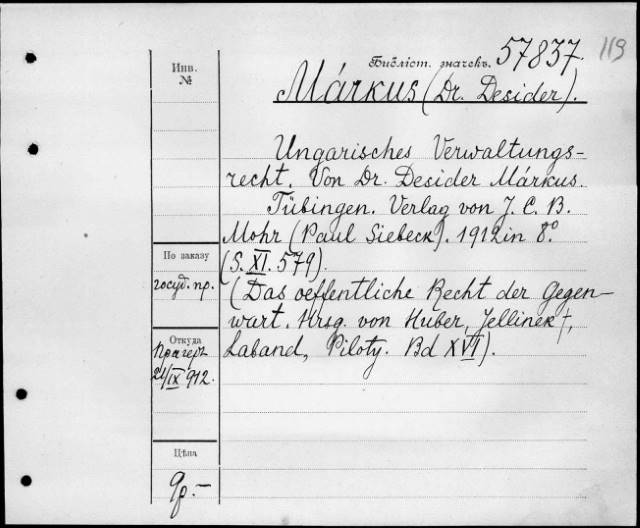 Библіот. значекъ. 57837. 119
Инв.
№
Márkus (Dr. Desider).
Ungarisches Verwaltungs-
recht. Von Dr. Desider Márkus.
Tübingen. Verlag von J. C. B.
Mohr (Paul Siebeck). 1912 in 8°.
(S. XI. 579).
(Das oeffentliche Recht der Gegen-
wart. Hrsg. von Huber, Jellinek †,
Laband, Piloty. Bd XVI).
По заказу
госуд. пр.
Откуда
Прагеръ
21/IX 912.
Цѣна
9р.-